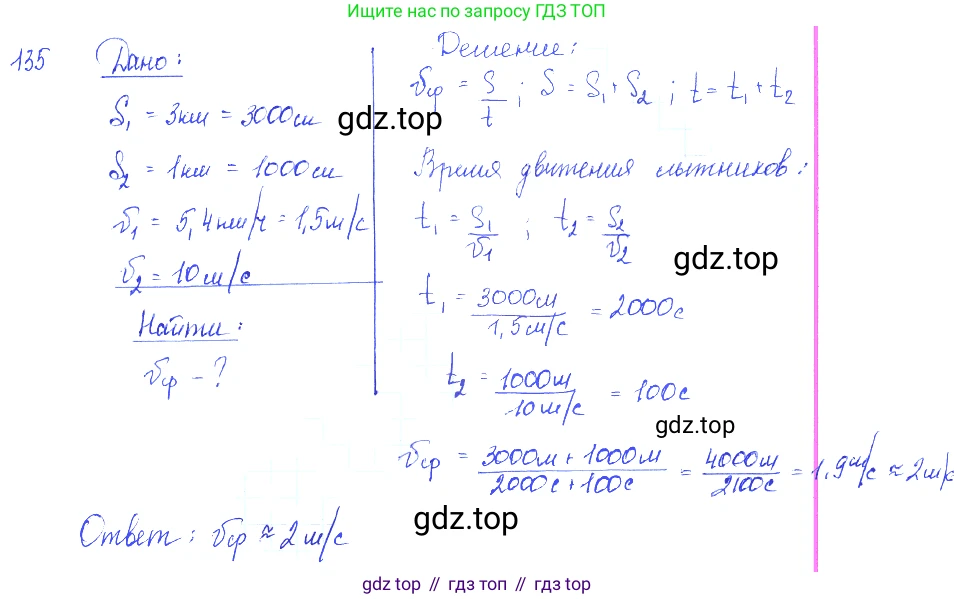 Ищите нас по запросу ГДЗ ТОП
135 Дано:
S₁ = 3км = 3000м
S₂ = 1км = 1000м
v₁ = 5,4км/ч = 1,5м/с
v₂ = 10м/с
Найти:
vср - ?
Решение:
vср = S/t ; S = S₁ + S₂ ; t = t₁ + t₂
gdz.top
Время движения лыжников:
t₁ = S₁/v₁ ; t₂ = S₂/v₂
gdz.top
t₁ = 3000м/1,5м/с = 2000с
t₂ = 1000м/10м/с = 100с
gdz.top
vср = 3000м + 1000м/2000с + 100с = 4000м/2100с = 1,9м/с ≈ 2м/с
gdz.top
Ответ: vср ≈ 2м/с
gdz top // гдз топ // gdz top